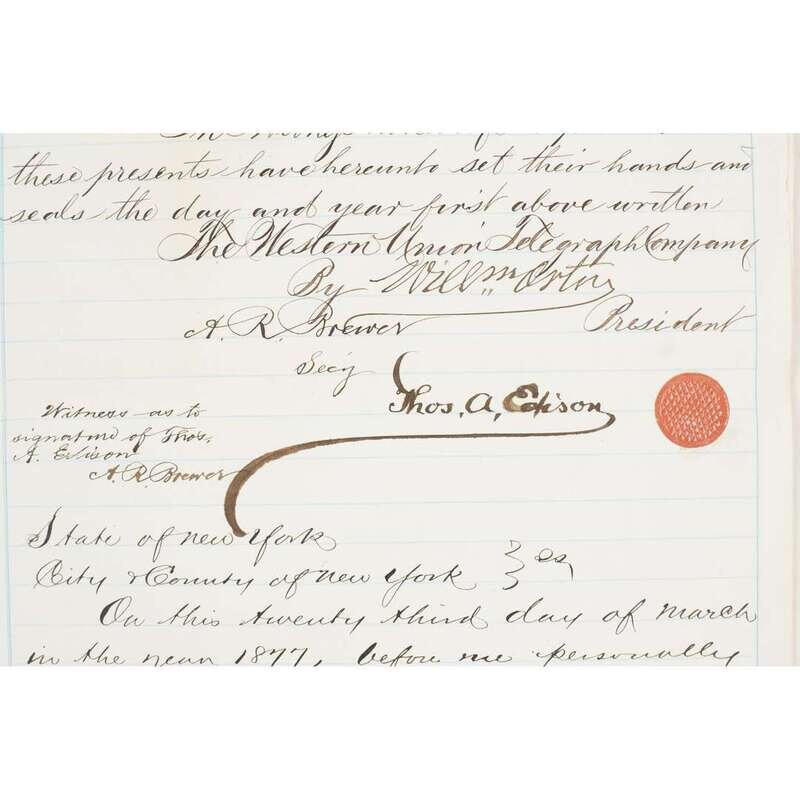 these presents have hereunto set their hands and
seals the day and year first above written
The Western Union Telegraph Company
By Willm Orton
A. R. Brewer President
Secy
Thos. A. Edison
Witness as to
signature of Thos.
A. Edison
A. R. Brewer
State of New York
City & County of New York } ss
On this twenty third day of March
in the year 1877, before me personally